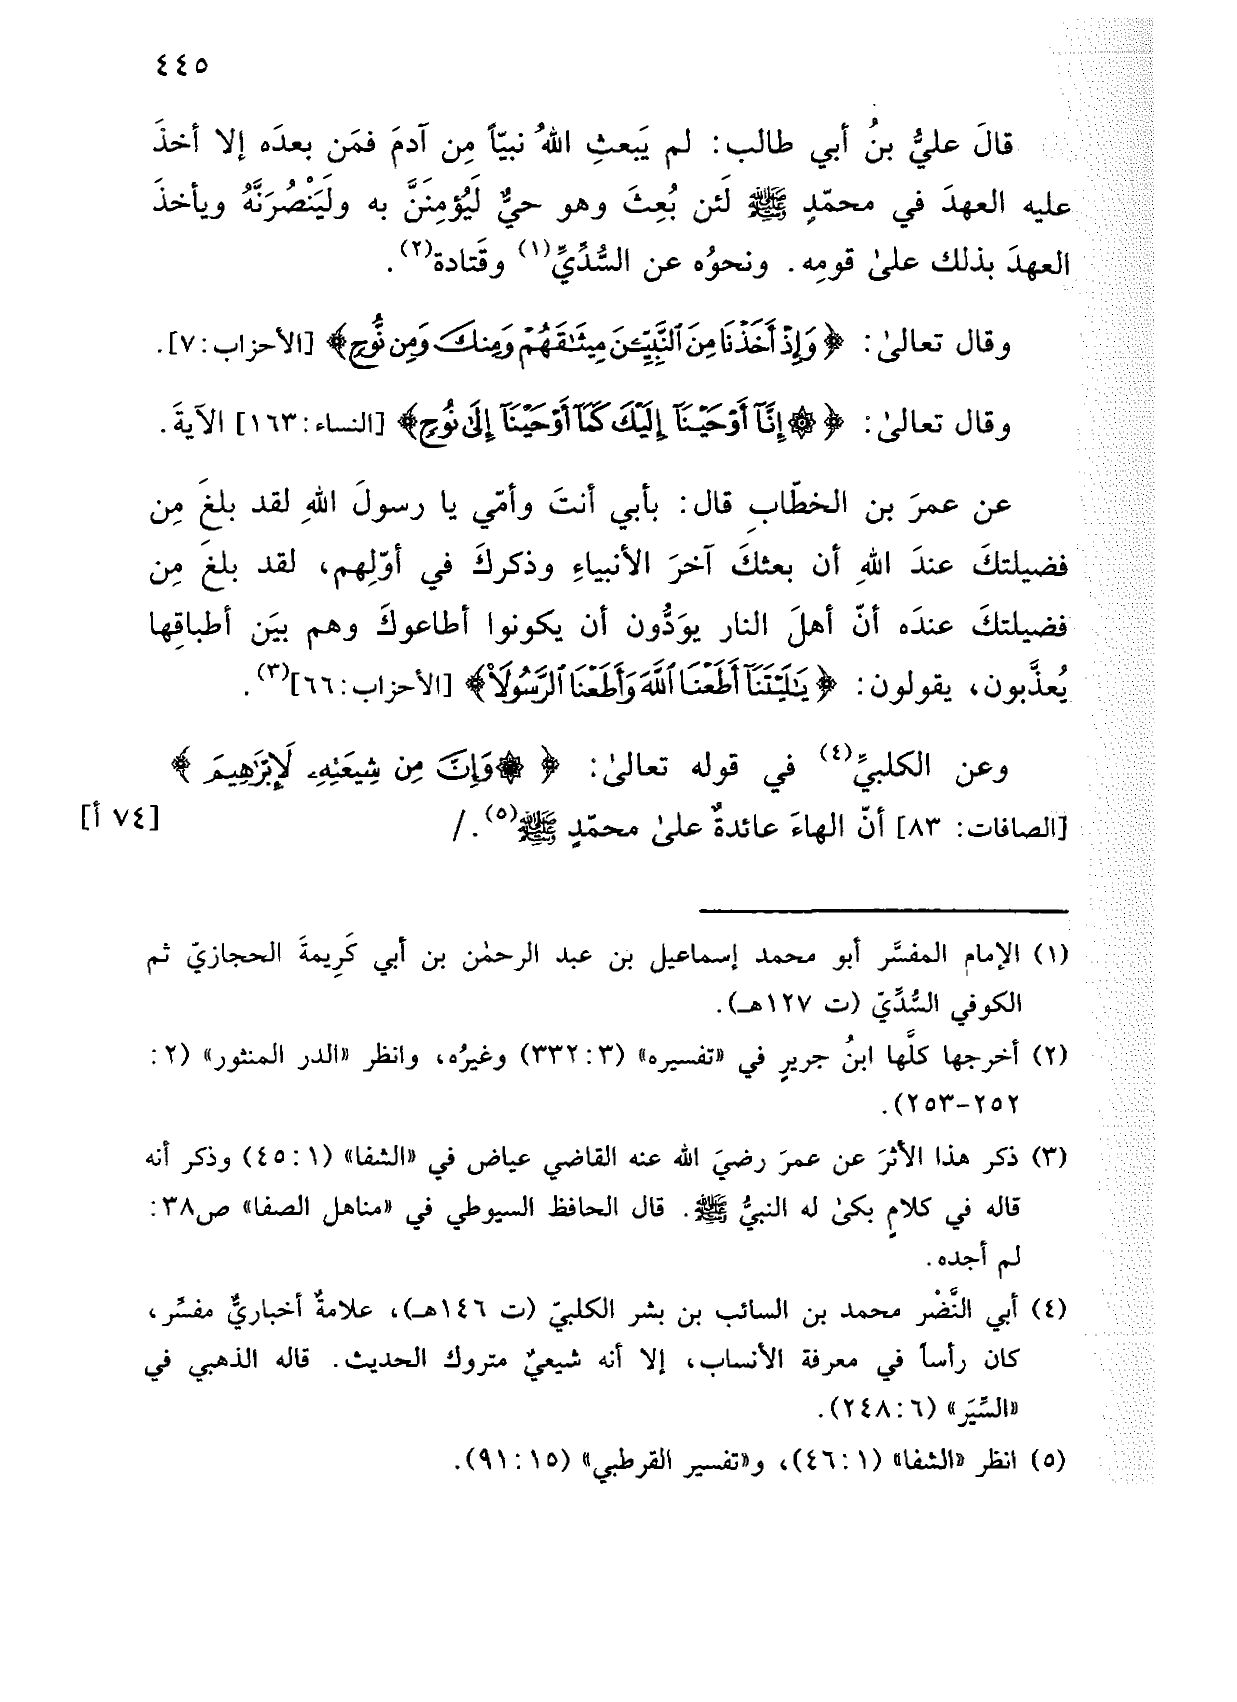 ٤٤٥
قالَ عليُّ بنُ أبي طالب: لم يَبعثِ اللهُ نبيّاً مِن آدمَ فمَن بعدَه إلا أخذَ
عليه العهدَ في محمّدٍ ﷺ لَئن بُعِثَ وهو حيٌّ لَيُؤمِنَنَّ به ولَيَنْصُرَنَّهُ ويأخذَ
العهدَ بذلك علىٰ قومِه. ونحوُه عن السُّدِّيِّ(١) وقَتادة(٢).
وقال تعالىٰ: ﴿وَإِذْ أَخَذْنَا مِنَ ٱلنَّبِيِّـۧنَ مِيثَٰقَهُمْ وَمِنكَ وَمِن نُّوحٍ﴾ [الأحزاب:٧].
وقال تعالىٰ: ﴿۞ إِنَّآ أَوْحَيْنَآ إِلَيْكَ كَمَآ أَوْحَيْنَآ إِلَىٰ نُوحٍ﴾ [النساء:١٦٣] الآيةَ.
عن عمرَ بن الخطّابِ قال: بأبي أنتَ وأمّي يا رسولَ اللهِ لقد بلغَ مِن
فضيلتكَ عندَ اللهِ أن بعثكَ آخرَ الأنبياءِ وذكركَ في أوّلِهم، لقد بلغَ مِن
فضيلتكَ عندَه أنّ أهلَ النار يوَدُّون أن يكونوا أطاعوكَ وهم بيَن أطباقِها
يُعذَّبون، يقولون: ﴿يَٰلَيْتَنَآ أَطَعْنَا ٱللَّهَ وَأَطَعْنَا ٱلرَّسُولَا۠﴾ [الأحزاب:٦٦](٣).
وعن الكلبيِّ(٤) في قوله تعالىٰ: ﴿۞ وَإِنَّ مِن شِيعَتِهِۦ لَإِبْرَٰهِيمَ﴾
[الصافات: ٨٣] أنّ الهاءَ عائدةٌ علىٰ محمّدٍ ﷺ(٥)./ [٧٤ أ]
(١) الإمام المفسَّر أبو محمد إسماعيل بن عبد الرحمٰن بن أبي كَرِيمةَ الحجازيّ ثم
الكوفي السُّدِّيّ (ت ١٢٧هـ).
(٢) أخرجها كلَّها ابنُ جريرٍ في «تفسيره» (٣: ٣٣٢) وغيرُه، وانظر «الدر المنثور» (٢:
٢٥٢-٢٥٣).
(٣) ذكر هذا الأثرَ عن عمرَ رضيَ الله عنه القاضي عياض في «الشفا» (١: ٤٥) وذكر أنه
قاله في كلامٍ بكىٰ له النبيُّ ﷺ. قال الحافظ السيوطي في «مناهل الصفا» ص٣٨:
لم أجده.
(٤) أبي النَّضْر محمد بن السائب بن بشر الكلبيّ (ت ١٤٦هـ)، علامةٌ أخباريٌّ مفسِّر،
كان رأساً في معرفة الأنساب، إلا أنه شيعيٌ متروك الحديث. قاله الذهبي في
«السِّيَر» (٦: ٢٤٨).
(٥) انظر «الشفا» (١: ٤٦)، و«تفسير القرطبي» (١٥: ٩١).